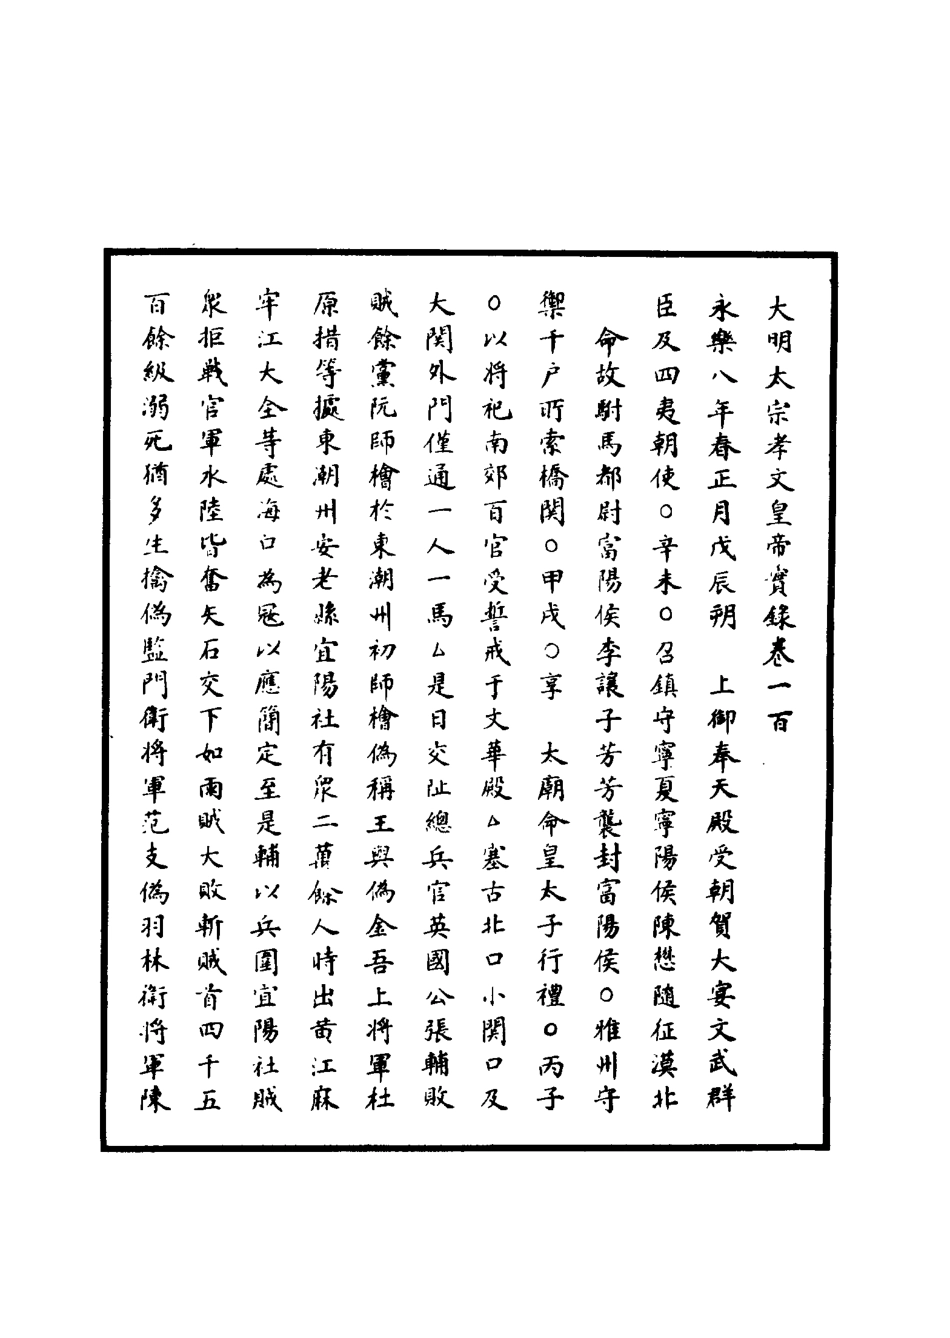 大明太宗孝文皇帝實錄卷一百
永樂八年春正月戊辰朔　上御奉天殿受朝賀大宴文武群
臣及四夷朝使○辛未○召鎮守寧夏寧陽侯陳懋隨征漠北
命故駙馬都尉富陽侯李讓子芳芳襲封富陽侯○雅州守
禦千户所索橋関○甲戌○享　太廟命皇太子行禮○丙子
○以将祀南郊百官受誓戒于文華殿△塞古北口小関口及
大関外門僅通一人一馬△是日交阯總兵官英國公張輔敗
賊餘黨阮師檜於東潮州初師檜偽稱王與偽金吾上將軍杜
原措等據東潮州安老縣宜陽社有眾二萬餘人時出黄江麻
牢江大全等處海口為冦以應簡定至是輔以兵圍宜陽社賊
眾拒戰官軍水陸皆奮矢石交下如雨賊大敗斬賊首四千五
百餘級溺死猶多生擒偽監門衛將軍范支偽羽林衛将軍陳